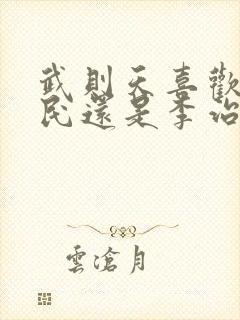 武則天喜歡
民還是李治
雲滄月